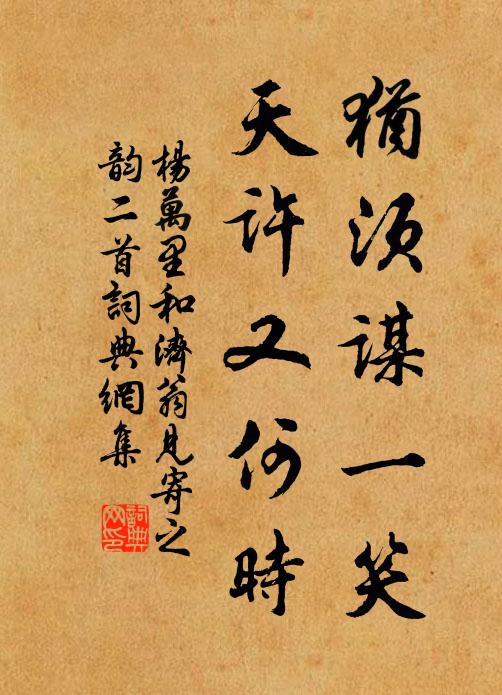 猶須謀一笑
天許又何時
楊萬里和濟翁見寄之
韵二首詞典網集
詞典网印